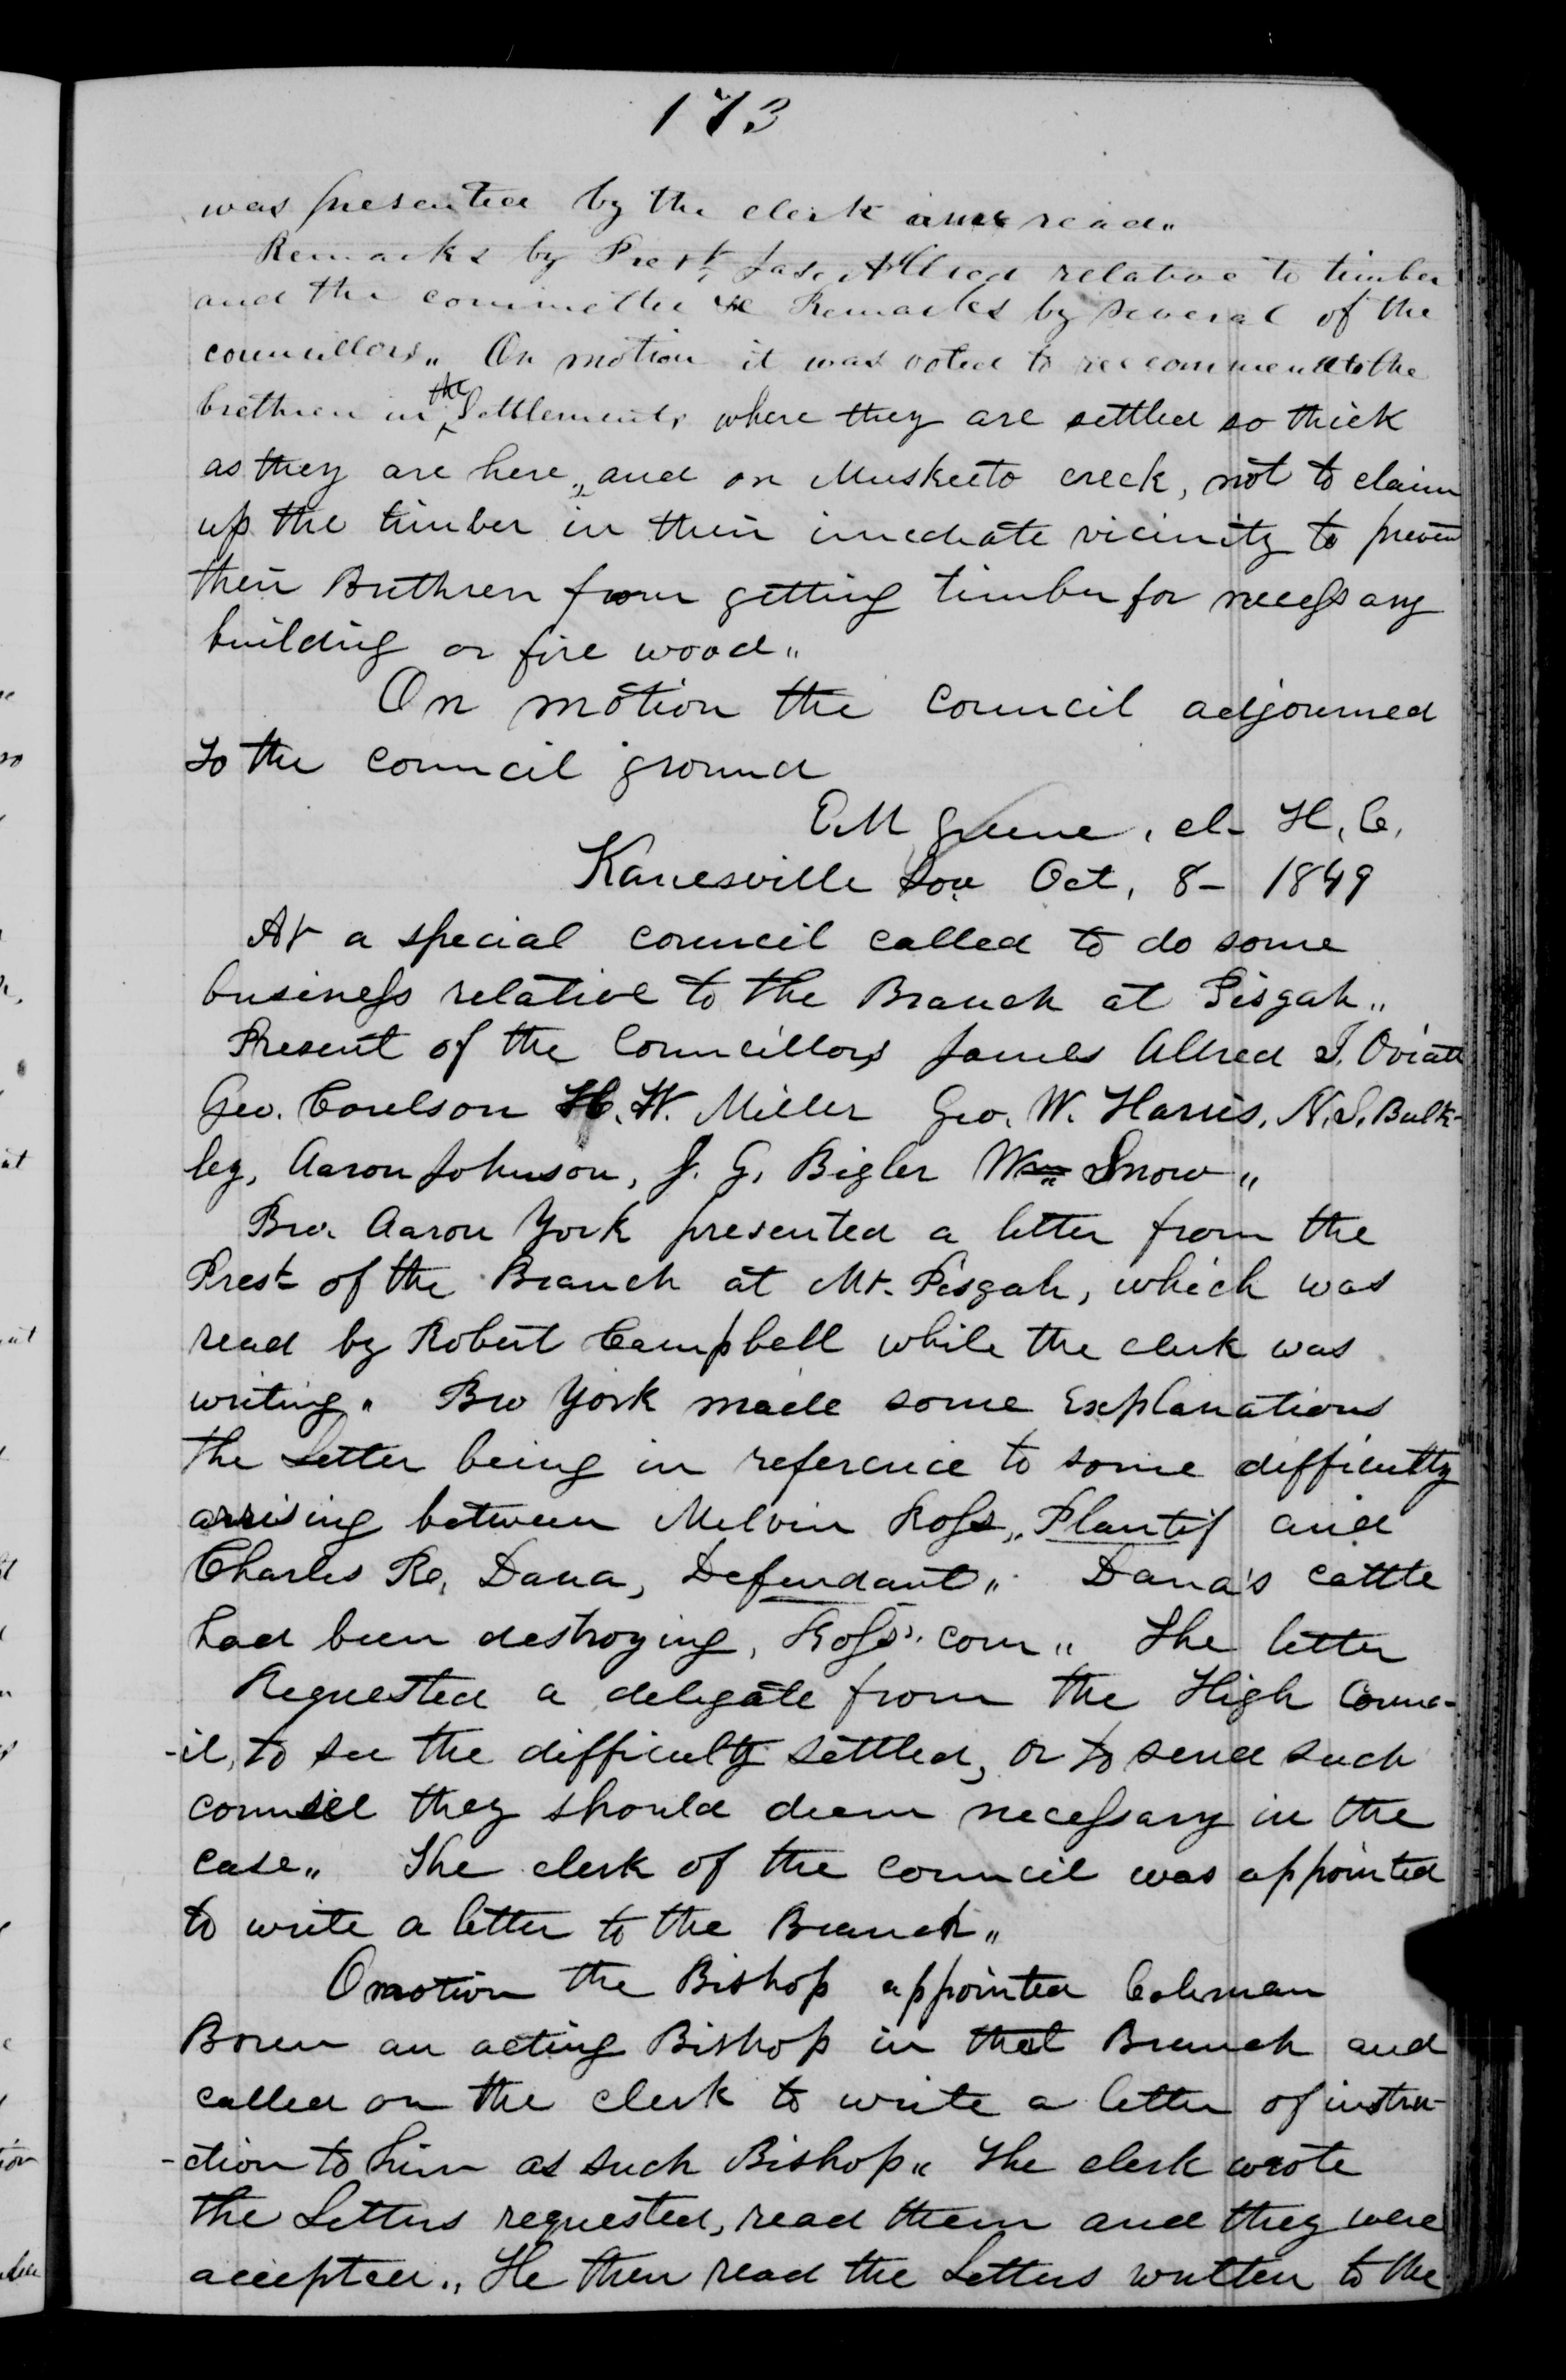 173
was presented by the clerk and read„
Remarks by Prest, Jas, Allred relative to timber
and the committee &c Remarks by several of the
councillors„ On motion it was voted to reccommend to the
brethren in the Settlements where they are settled so thick
as they are here„ and on Muskeeto creek, not to claim
up the timber in their imediate vicinity to prevent
their Brethren from getting timber for necessary
building or fire wood„
On motion the council adjourned
to the council ground
E. M Greene, cl- H, C,
Kanesville Iow. Oct, 8- 1849
At a special council called to do some
business relative to the Branch at Pisgah„
Present of the Councillors James Allred I. Oviatt
Geo. Coulson H. W. Miller Geo, W. Harris, N. S, Bulk-
ley, Aaron Johnson, J. G, Bigler Wm Snow„
Bro. Aaron York presented a letter from the
Prest of the Branch at Mt. Pisgah, which was
read by Robert Campbell while the clerk was
writing„ Bro York made some Explanations
the Letter being in reference to some difficultty
arrising between Melvin Ross„ Plantif and
Charles R, Dana, Defendant„ Dana's cattle
had been destroying, Ross', corn„ The letter
Requested a delegate from the High Counc-
-il, to see the difficulty settled, or to send such
counsel they should deem necessary in the
case„ The clerk of the council was appointed
to write a letter to the Branch„
Omotion the Bishop appointed Coleman
Boren an acting Bishop in that Branch and
called on the clerk to write a letter of instru-
-ction to him as such Bishop„ The clerk wrote
the Letters requested, read them and they were
accepted„ He then read the Letters written to the